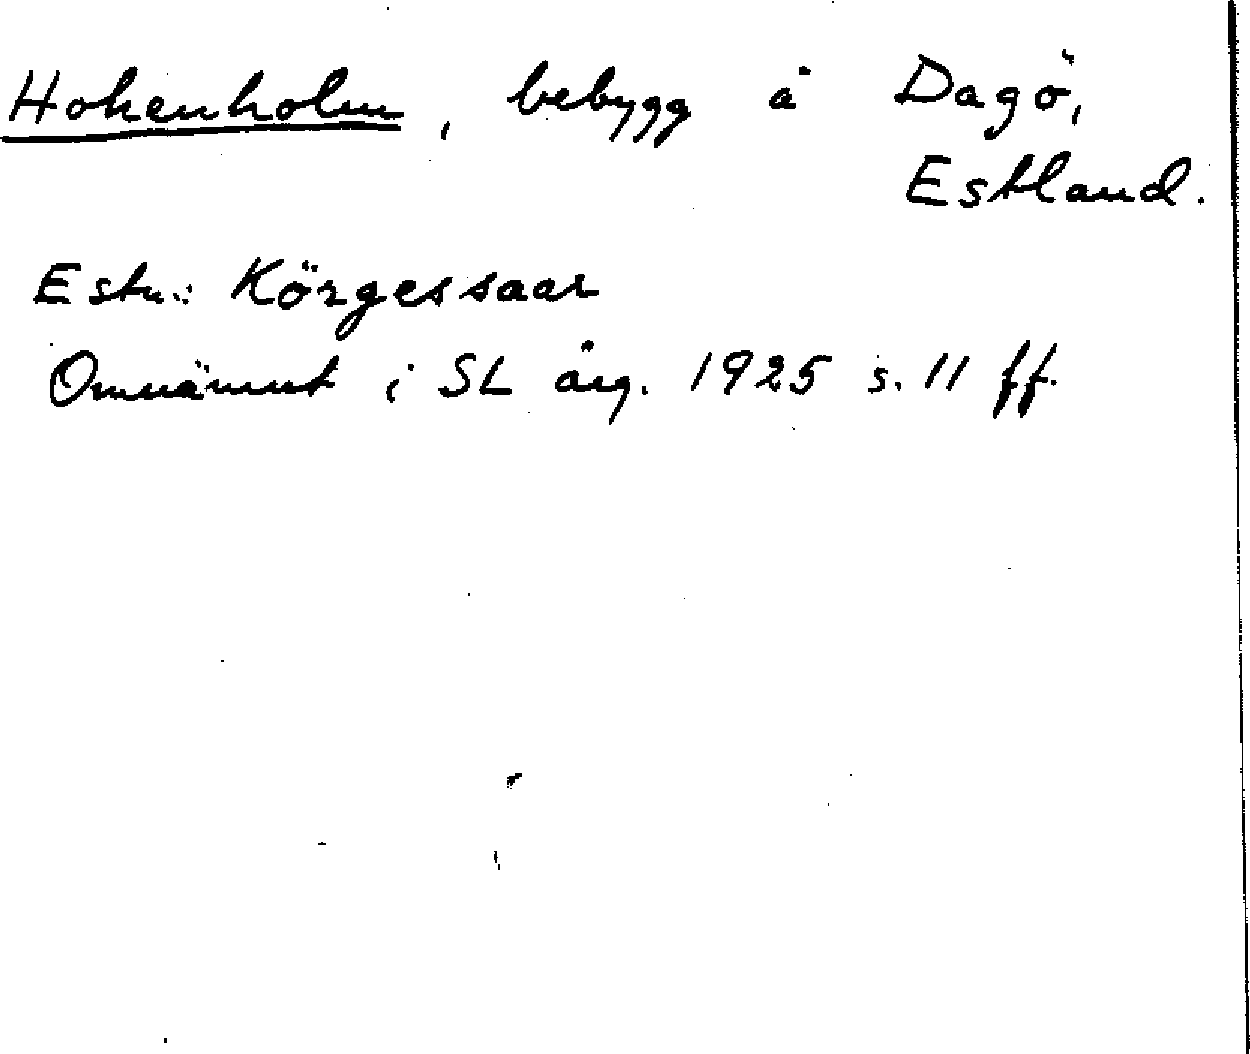 Hohenholm, bebygg å Dagö,
Estland.
Estn.: Körgessaar
Omnämnt i SL årg. 1925 s. 11 ff.